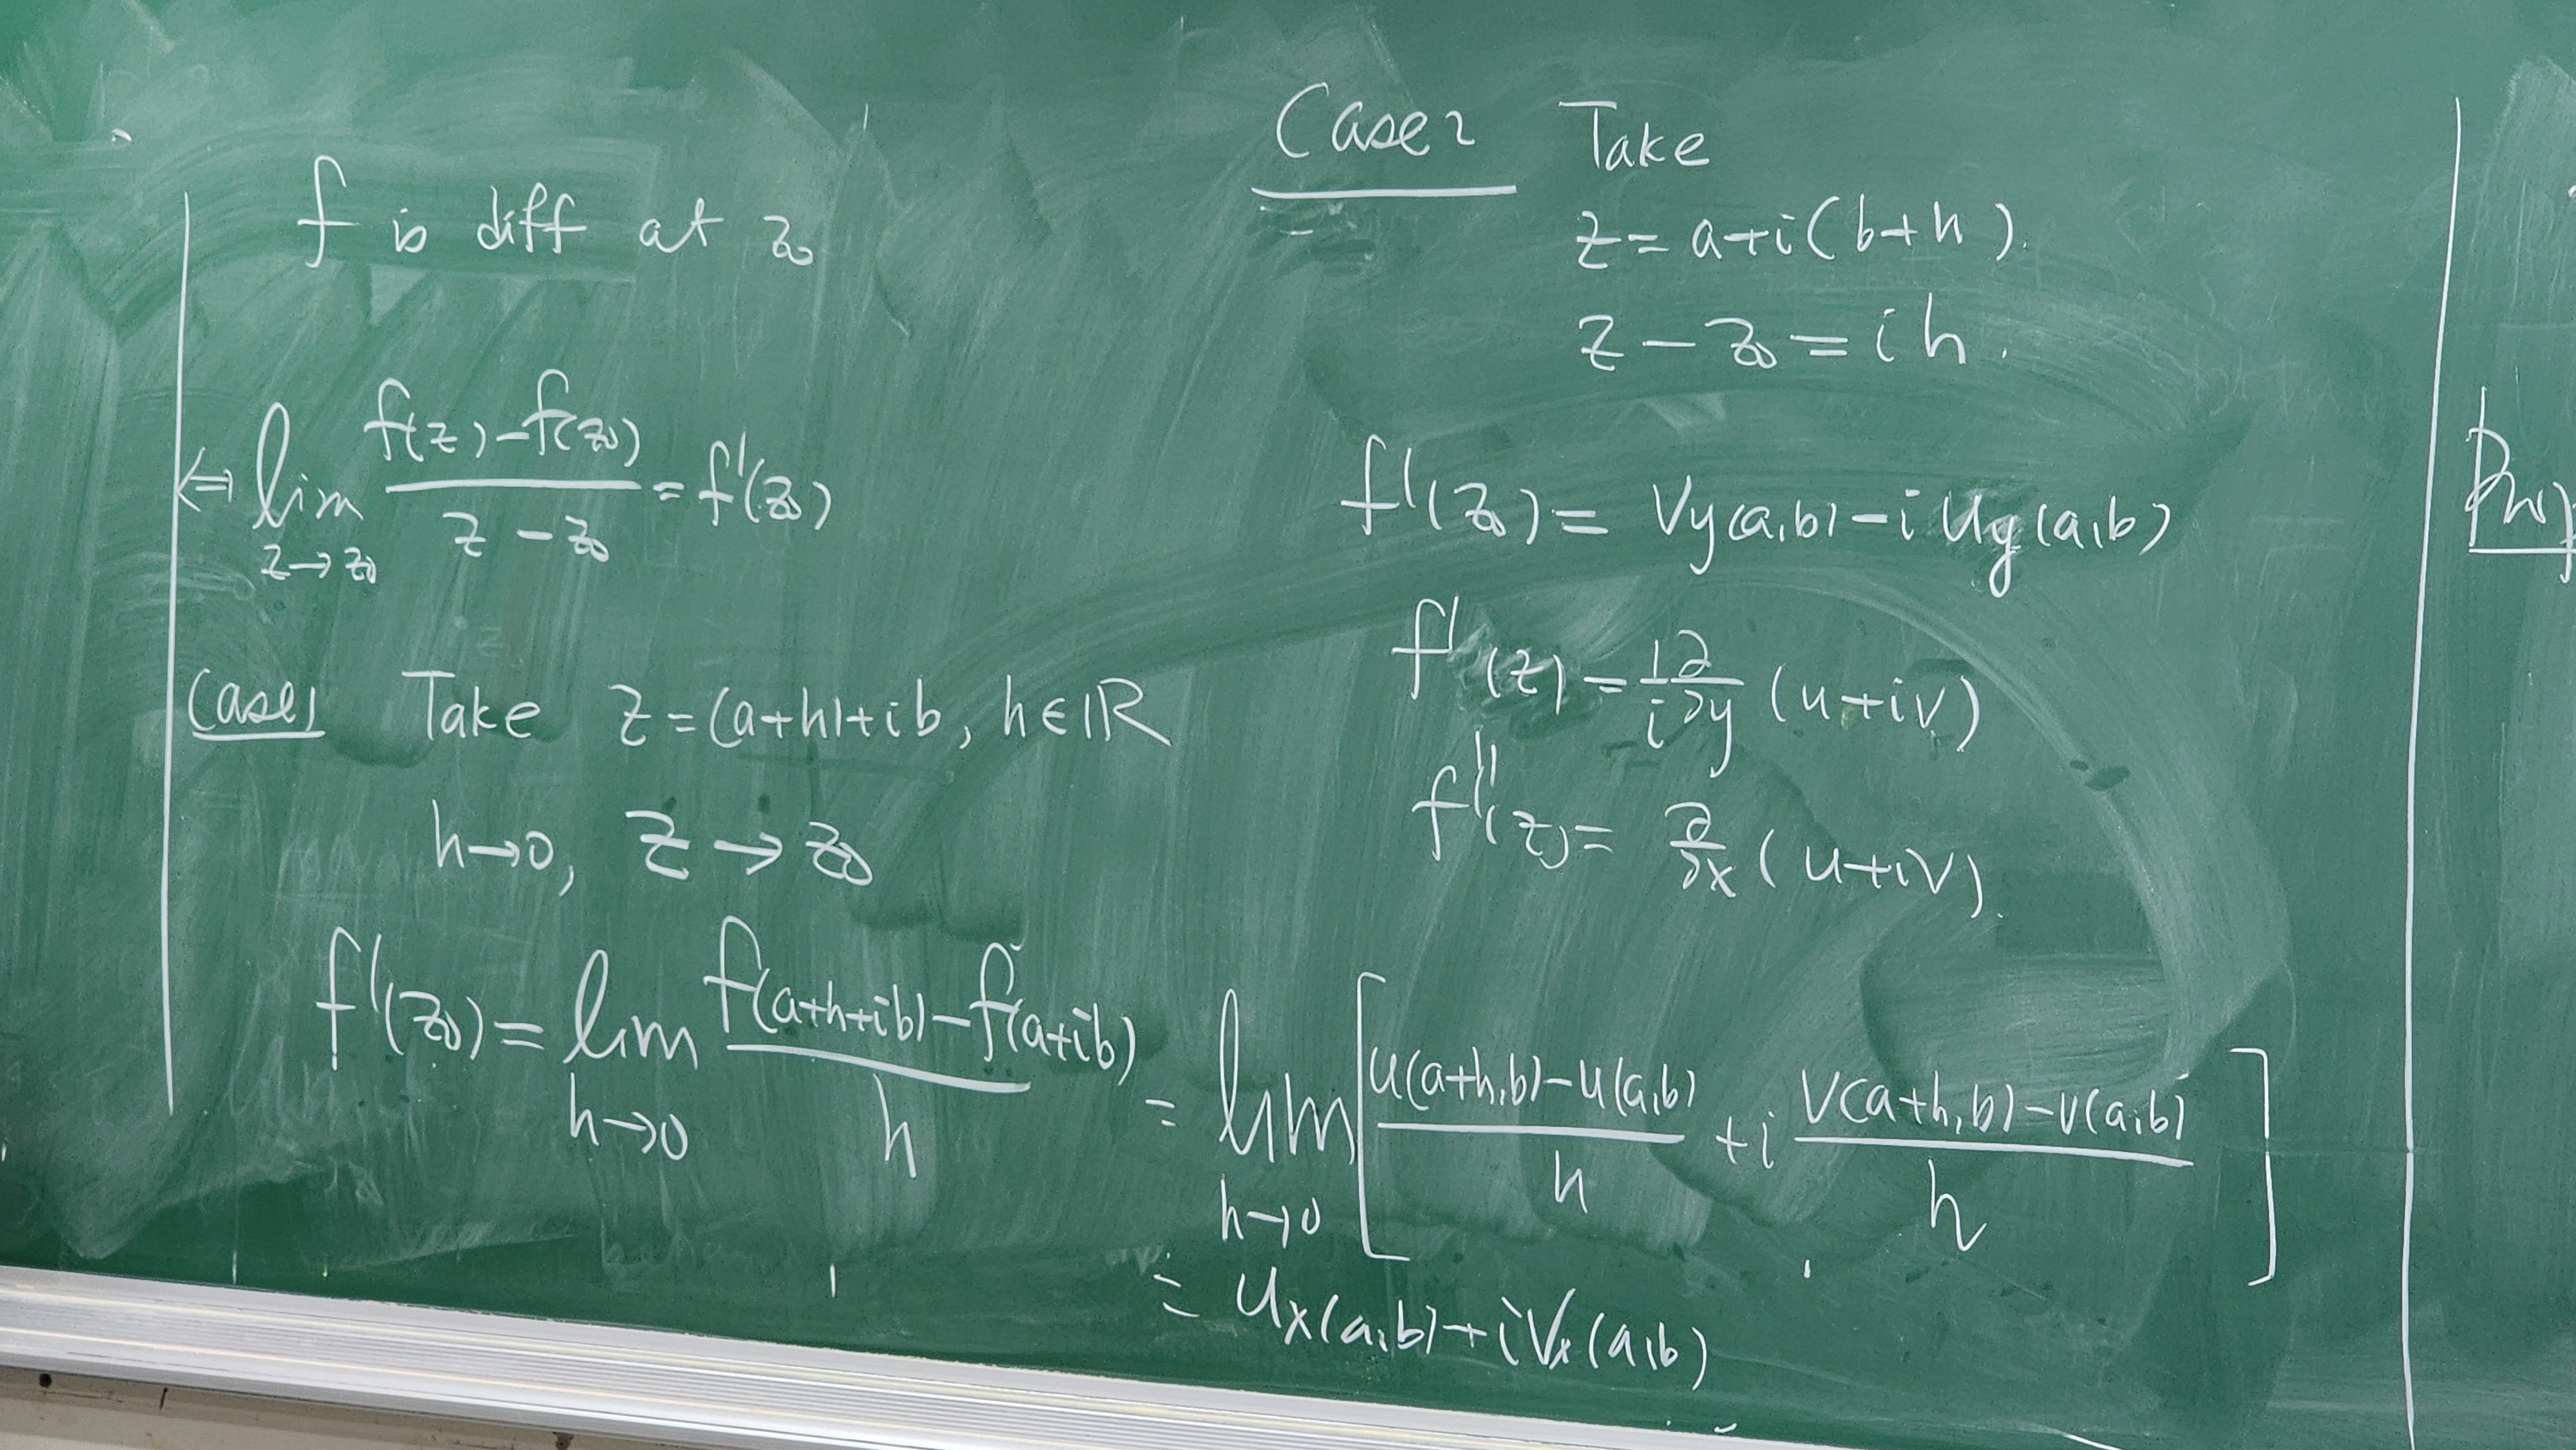 f is diff at z₀
⇔ lim_{z→z₀} (f(z)-f(z₀))/(z-z₀) = f'(z₀)
Case 1 Take z=(a+h)+ib, h∈ℝ
h→0, z→z₀
f'(z₀) = lim_{h→0} (f(a+h+ib)-f(a+ib))/h
= lim_{h→0} [ (u(a+h,b)-u(a,b))/h + i (v(a+h,b)-v(a,b))/h ]
= u_x(a,b)+iv_x(a,b)
Case 2 Take
z=a+i(b+h).
z-z₀=ih.
f'(z₀) = v_y(a,b)-iu_y(a,b)
f'(z) = 1/i ∂/∂y (u+iv)
||
f'(z) = ∂/∂x (u+iv).